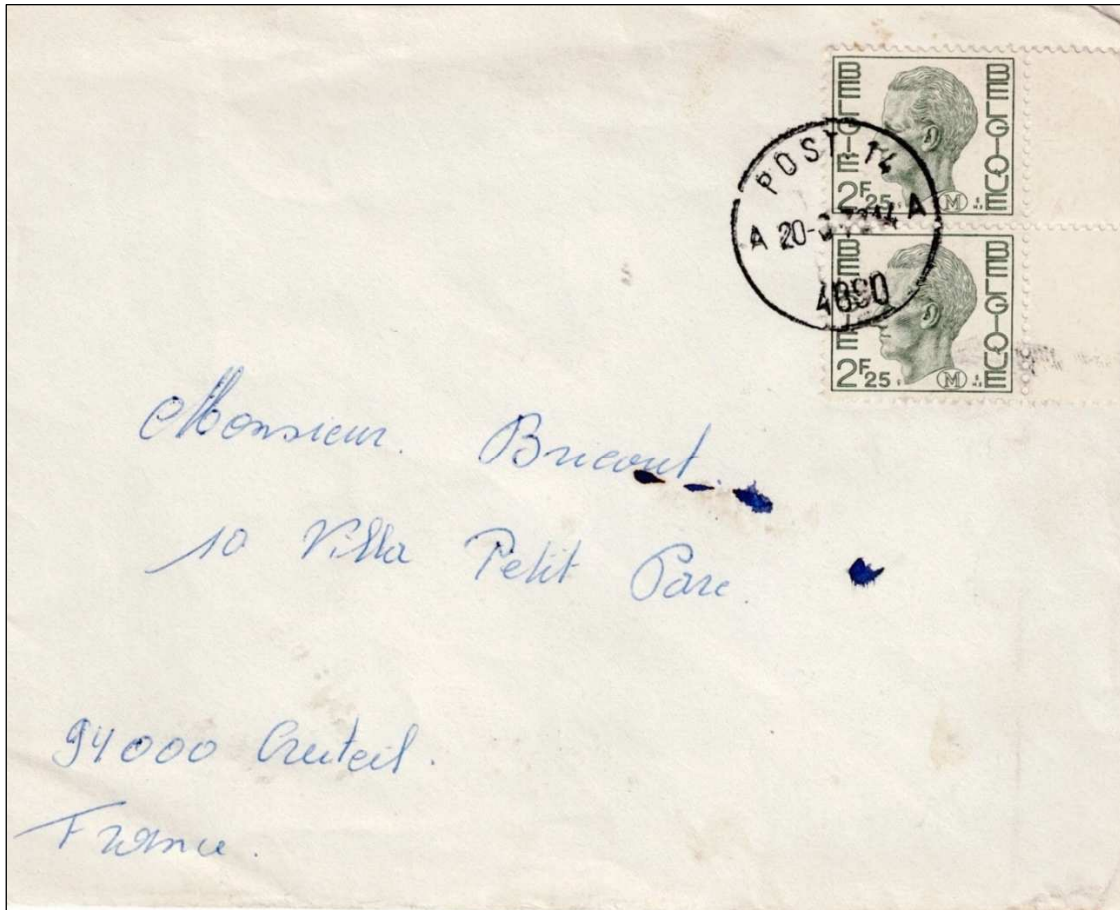 BELGIE BELGIQUE
2F25 M
POST 14
A 20- 14 A
4090
BELGIE BELGIQUE
2F25 M
Monsieur. Bricout.
10 Villa Petit Parc.
94000 Creteil.
France.